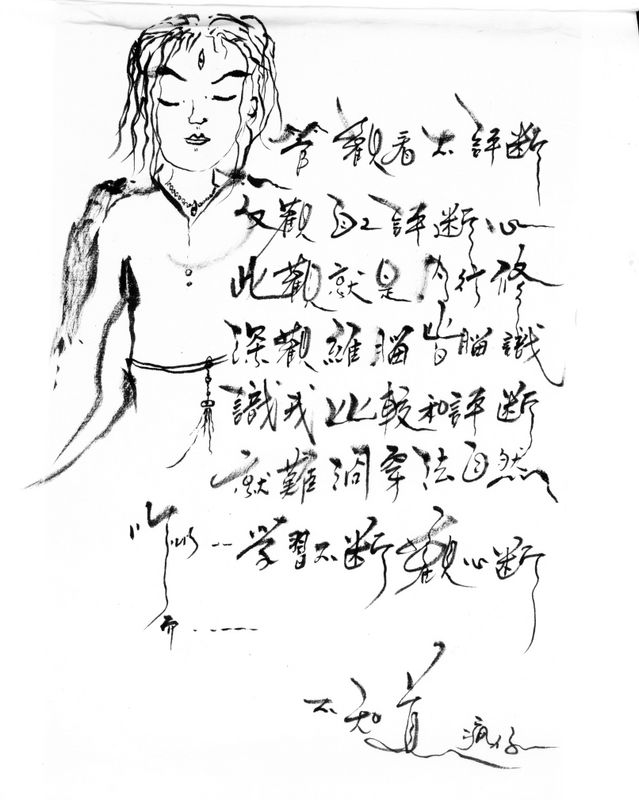 觀看不評斷
反觀自己評斷心
此觀就是內行修
深觀維腦皆腦識
識我比較和評斷
就難洞穿法自然
所以--學習不斷觀心斷
而------
不知道 瘋仔